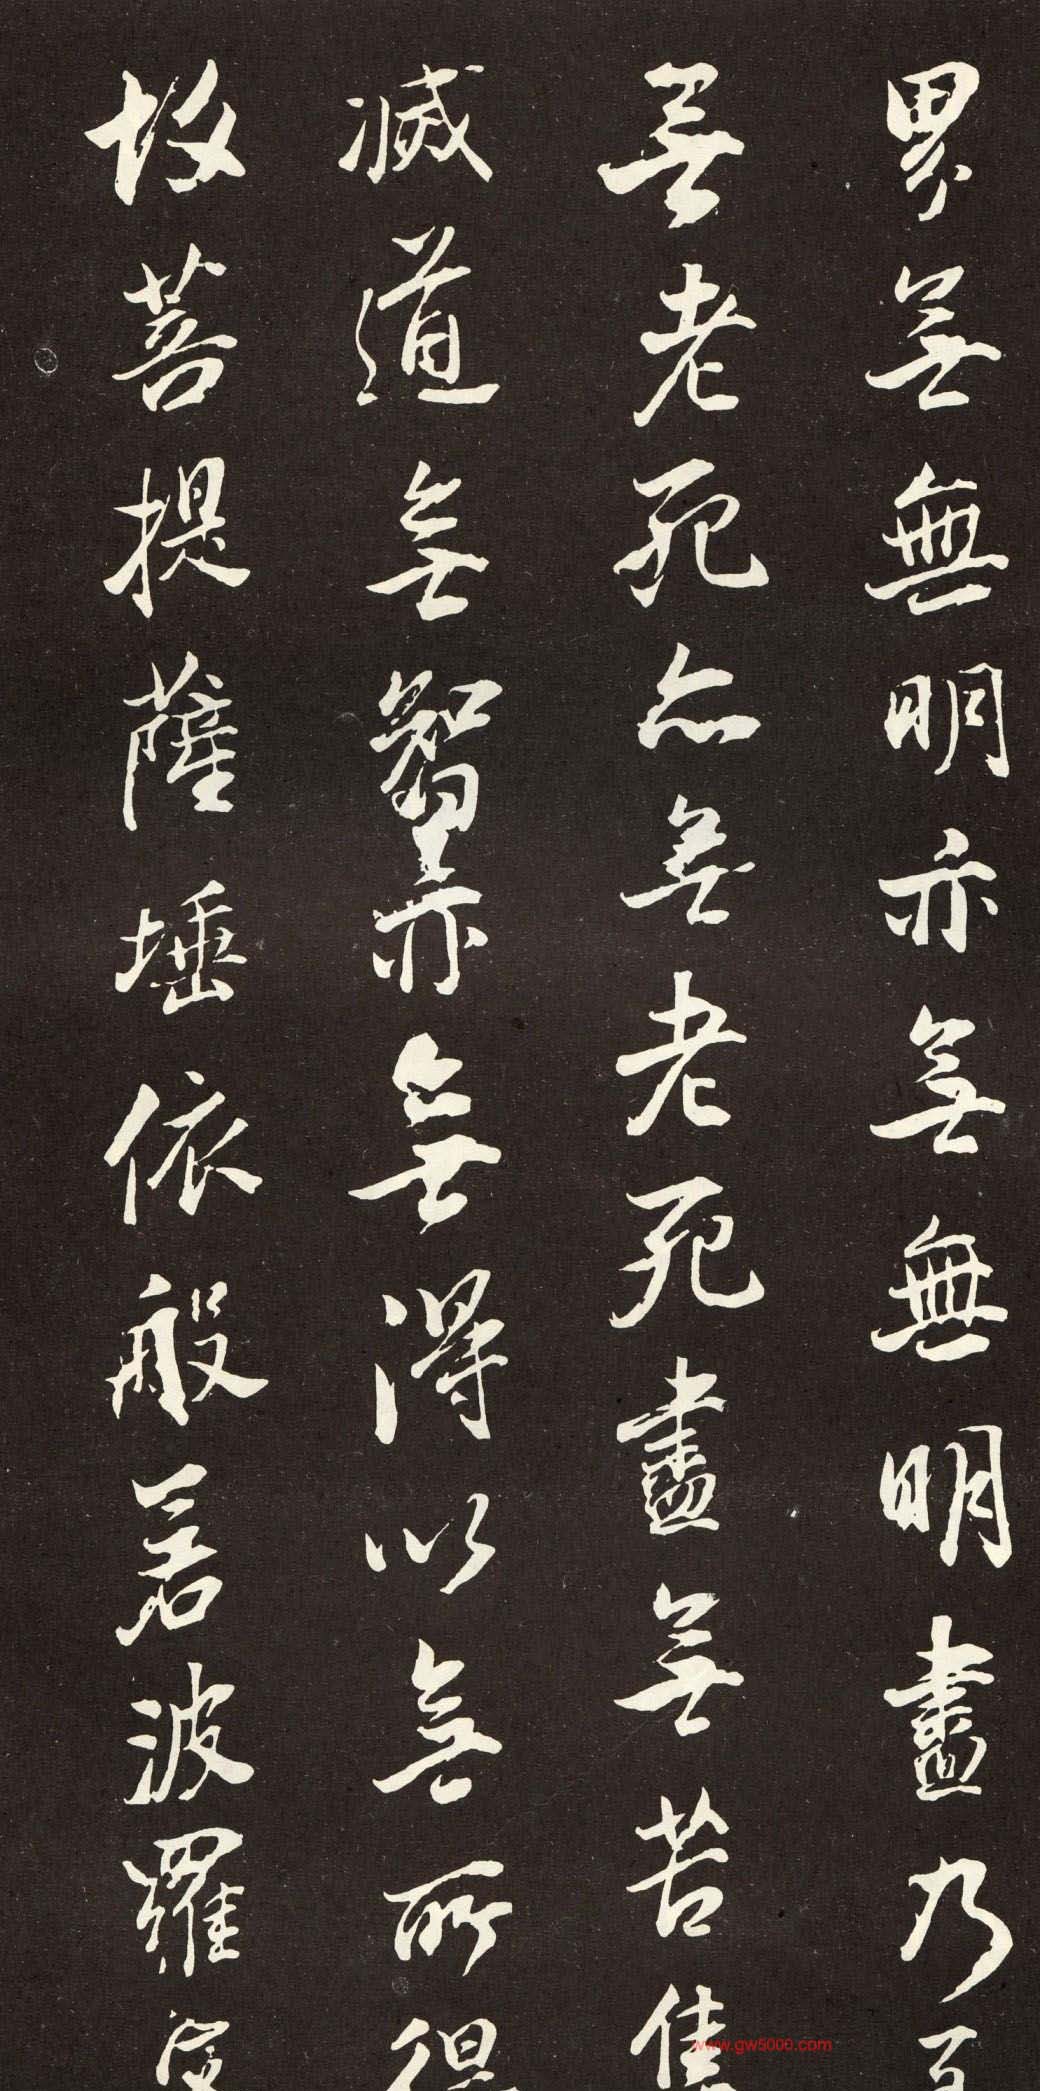 界無無明亦無無明盡乃
無老死亦無老死盡無苦
滅道無智亦無得以無所得
故菩提薩埵依般若波羅
www.gw5000.com